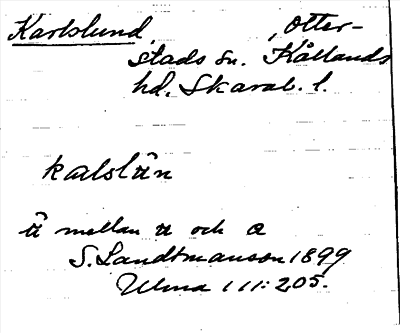 Karlslund, Otter-
stads sn. Kållands
hd. Skarab. l.
kalslun
mellan och a
S. Landtmanson 1899
Ulma 111:205.